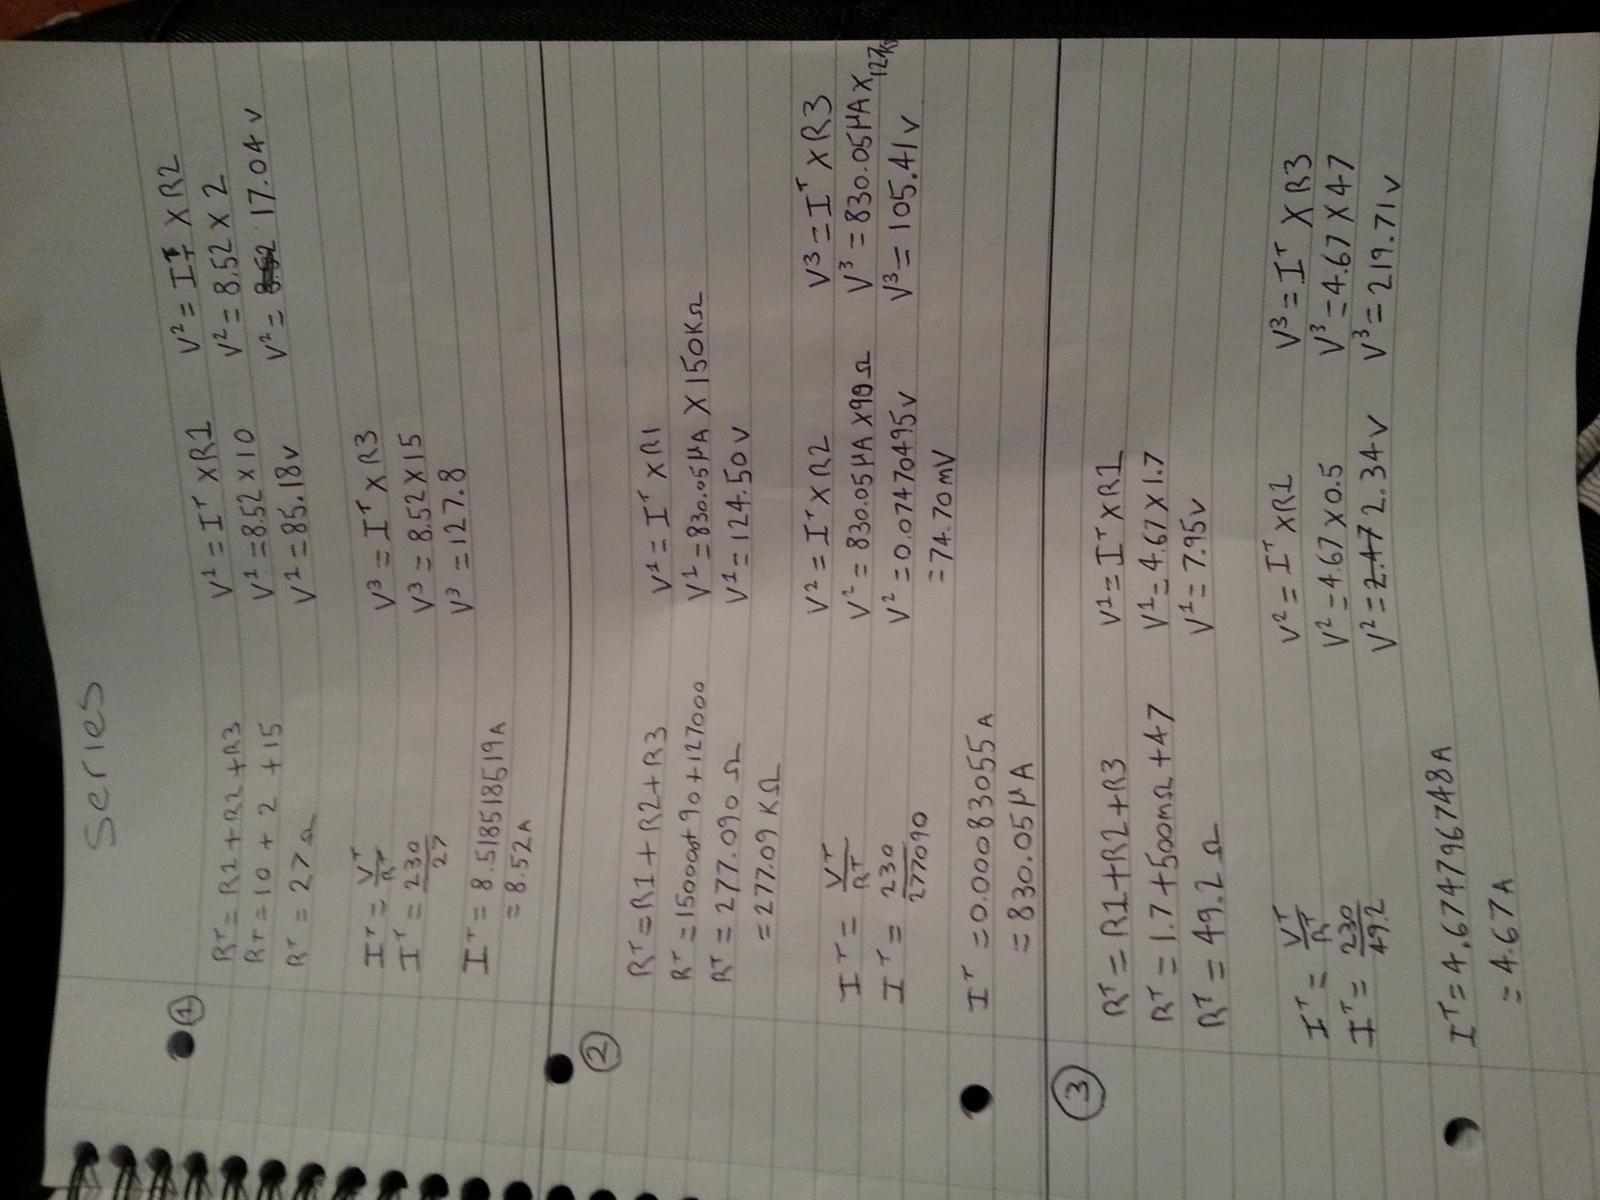 Series
① Rᵀ = R1 + R2 + R3
Rᵀ = 10 + 2 + 15
Rᵀ = 27Ω
Iᵀ = Vᵀ/Rᵀ
Iᵀ = 230/27
Iᵀ = 8.518518519A
= 8.52A
V¹ = Iᵀ X R1
V¹ = 8.52 X 10
V¹ = 85.18v
V² = Iᵀ X R2
V² = 8.52 X 2
V² = 17.04v
V³ = Iᵀ X R3
V³ = 8.52 X 15
V³ = 127.8
② Rᵀ = R1 + R2 + R3
Rᵀ = 150000 + 90 + 127000
Rᵀ = 277.090 Ω
= 277.09 KΩ
Iᵀ = Vᵀ/Rᵀ
Iᵀ = 230/277090
Iᵀ = 0.00083055A
= 830.05 µA
V¹ = Iᵀ X R1
V¹ = 830.05µA X 150KΩ
V¹ = 124.50v
V² = Iᵀ X R2
V² = 830.05µA X 90Ω
V² = 0.07470495v
= 74.70mV
V³ = Iᵀ X R3
V³ = 830.05µA X 127K
V³ = 105.41v
③ Rᵀ = R1 + R2 + R3
Rᵀ = 1.7 + 500mΩ + 47
Rᵀ = 49.2Ω
Iᵀ = Vᵀ/Rᵀ
Iᵀ = 230/49.2
Iᵀ = 4.674796748A
= 4.67A
V¹ = Iᵀ X R1
V¹ = 4.67 X 1.7
V¹ = 7.95v
V² = Iᵀ X R1
V² = 4.67 X 0.5
V² = 2.47 2.34v
V³ = Iᵀ X R3
V³ = 4.67 X 47
V³ = 219.71v